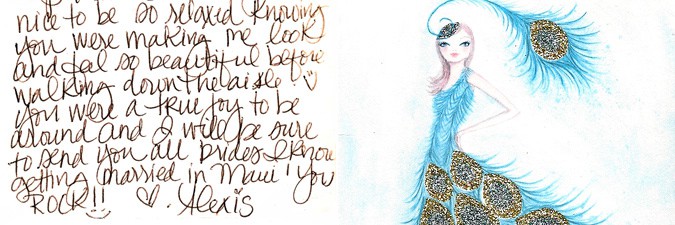 nice to be so relaxed knowing
you were making me look
and feel so beautiful before
walking down the aisle! ♡
You were a true joy to be
around and I will be sure
to send you all brides I know
getting married in Maui! You
ROCK!! ♡ · Alexis